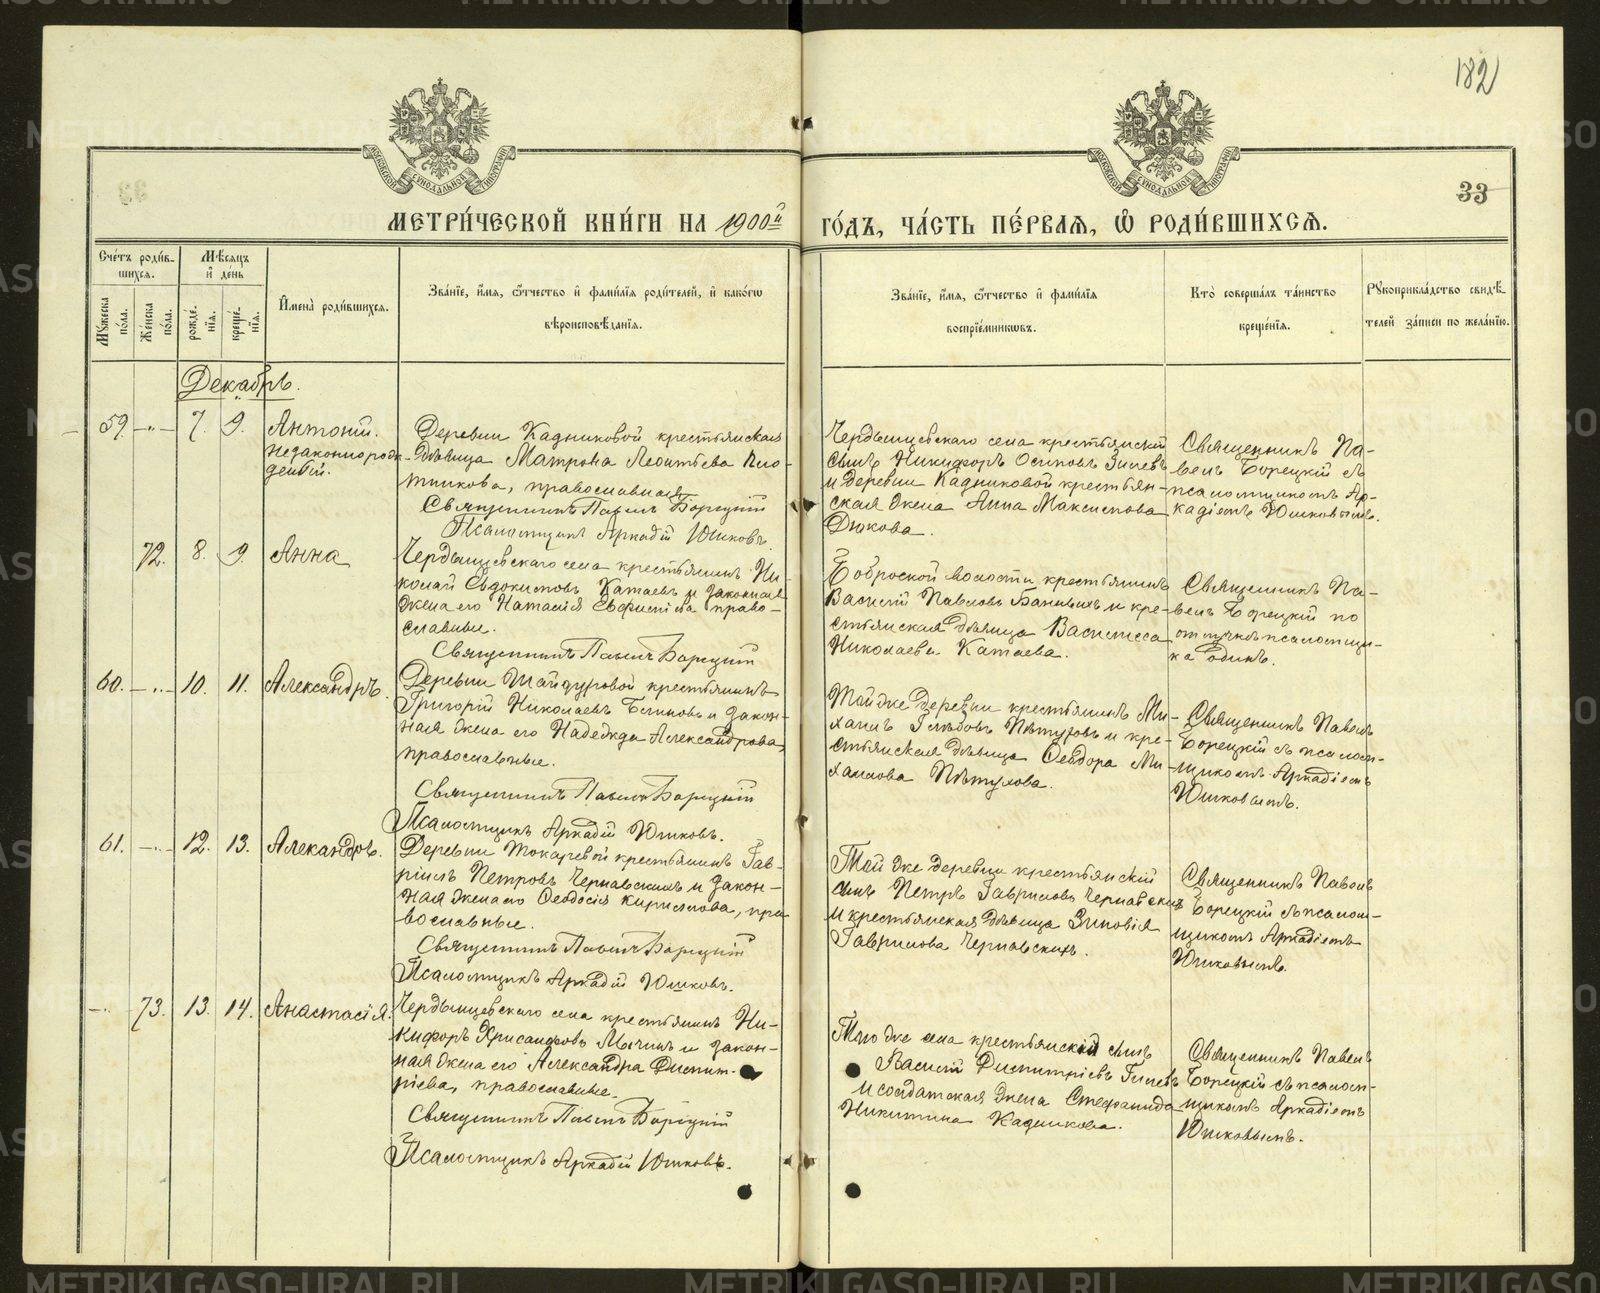 182
33
МЕТРИ́ЧЕСКОЙ КНИ́ГИ НА 1900й ГО́ДЪ, ЧА́СТЬ ПЕ́РВАѦ, Ѽ РОДИ́ВШИХСѦ.
Сче́тъ роди́в-
шихсѧ.
Мѣ́сѧцъ
и҆ де́нь
Мꙋ́жеска
по́ла.
Же́нска
по́ла.
рожде́-
нїѧ.
креще́-
нїѧ.
И҆мена̀ роди́вшихсѧ.
Зва́нїе, и҆́мѧ, ѻ҆́тчество и҆ фами́лїѧ роди́телей, и҆ како́гѡ
вѣроисповѣ́данїѧ.
Зва́нїе, и҆́мѧ, ѻ҆́тчество и҆ фами́лїѧ
воспрїе́мникѡвъ.
Кто̀ соверша́лъ та́инство
креще́нїѧ.
Рꙋкоприкла́дство свидѣ́-
телей за́писи по жела́нїю.
Декабрь.
59. -„- 7. 9. Антоній.
незаконнорож-
денный.
Деревни Кадниковой крестьянская
дѣвица Матрона Леонтьева Пло-
тникова, православная
Священникъ Павелъ Борецкій
Псаломщикъ Аркадій Юшковъ.
Чердынцевскаго села крестьянскій
сынъ Никифоръ Осиповъ
и деревни Кадниковой крестьян-
ская жена Анна Максимова
Дюкова.
Священникъ Па-
велъ Борецкій съ
псаломщикомъ Ар-
кадіемъ Юшковымъ.
72. 8. 9. Анна
Чердынцевскаго села крестьянинъ Ни-
колай Евдокимовъ Катаевъ и законная
жена его Наталія Евфиміева право-
славные.
Священникъ Павелъ Борецкій
волости крестьянинъ
Василій Павловъ и кре-
стьянская дѣвица Василисса
Николаева Катаева.
Священникъ Па-
велъ Борецкій по
псаломщи-
ка одинъ.
60. -„- 10. 11. Александръ.
Деревни Шайдуровой крестьянинъ
Григорій Николаевъ Блиновъ и закон-
ная жена его Надежда Александрова,
православные.
Священникъ Павелъ Борецкій
Псаломщикъ Аркадій Юшковъ.
Той же деревни крестьянинъ Ми-
хаилъ Глѣбовъ Пѣтуховъ и кре-
стьянская дѣвица Ѳеодора Ми-
хаилова Пѣтухова.
Священникъ Павелъ
Борецкій съ псалом-
щикомъ Аркадіемъ
Юшковымъ.
61. -„- 12. 13. Алекандръ.
Деревни Токаревой крестьянинъ Гав-
ріилъ Петровъ Чернавскихъ и закон-
ная жена его Ѳеодосія Кириллова, пра
вославные.
Священникъ Павелъ Борецкій
Псаломщикъ Аркадій Юшковъ.
Той же деревни крестьянскій
сынъ Петръ Гавриловъ Чернавскихъ
и крестьянская дѣвица Зиновія
Гаврилова Чернавскихъ.
Священникъ Павелъ
Борецкій съ псалом-
щикомъ Аркадіемъ
Юшковымъ.
-„- 73. 13. 14. Анастасія.
Чердынцевскаго села крестьянинъ Ни-
кифоръ Хрисанфовъ и закон-
ная жена его Александра Димит-
ріева, православные.
Священникъ Павелъ Борецкій
Псаломщикъ Аркадій Юшковъ.
Того же села крестьянскій сынъ
Василій Димитріевъ
и солдатская жена Стефанида
Никитина Кадникова.
Священникъ Павелъ
Борецкій съ псалом-
щикомъ Аркадіемъ
Юшковымъ.
METRIKI.GASO-URAL.RU